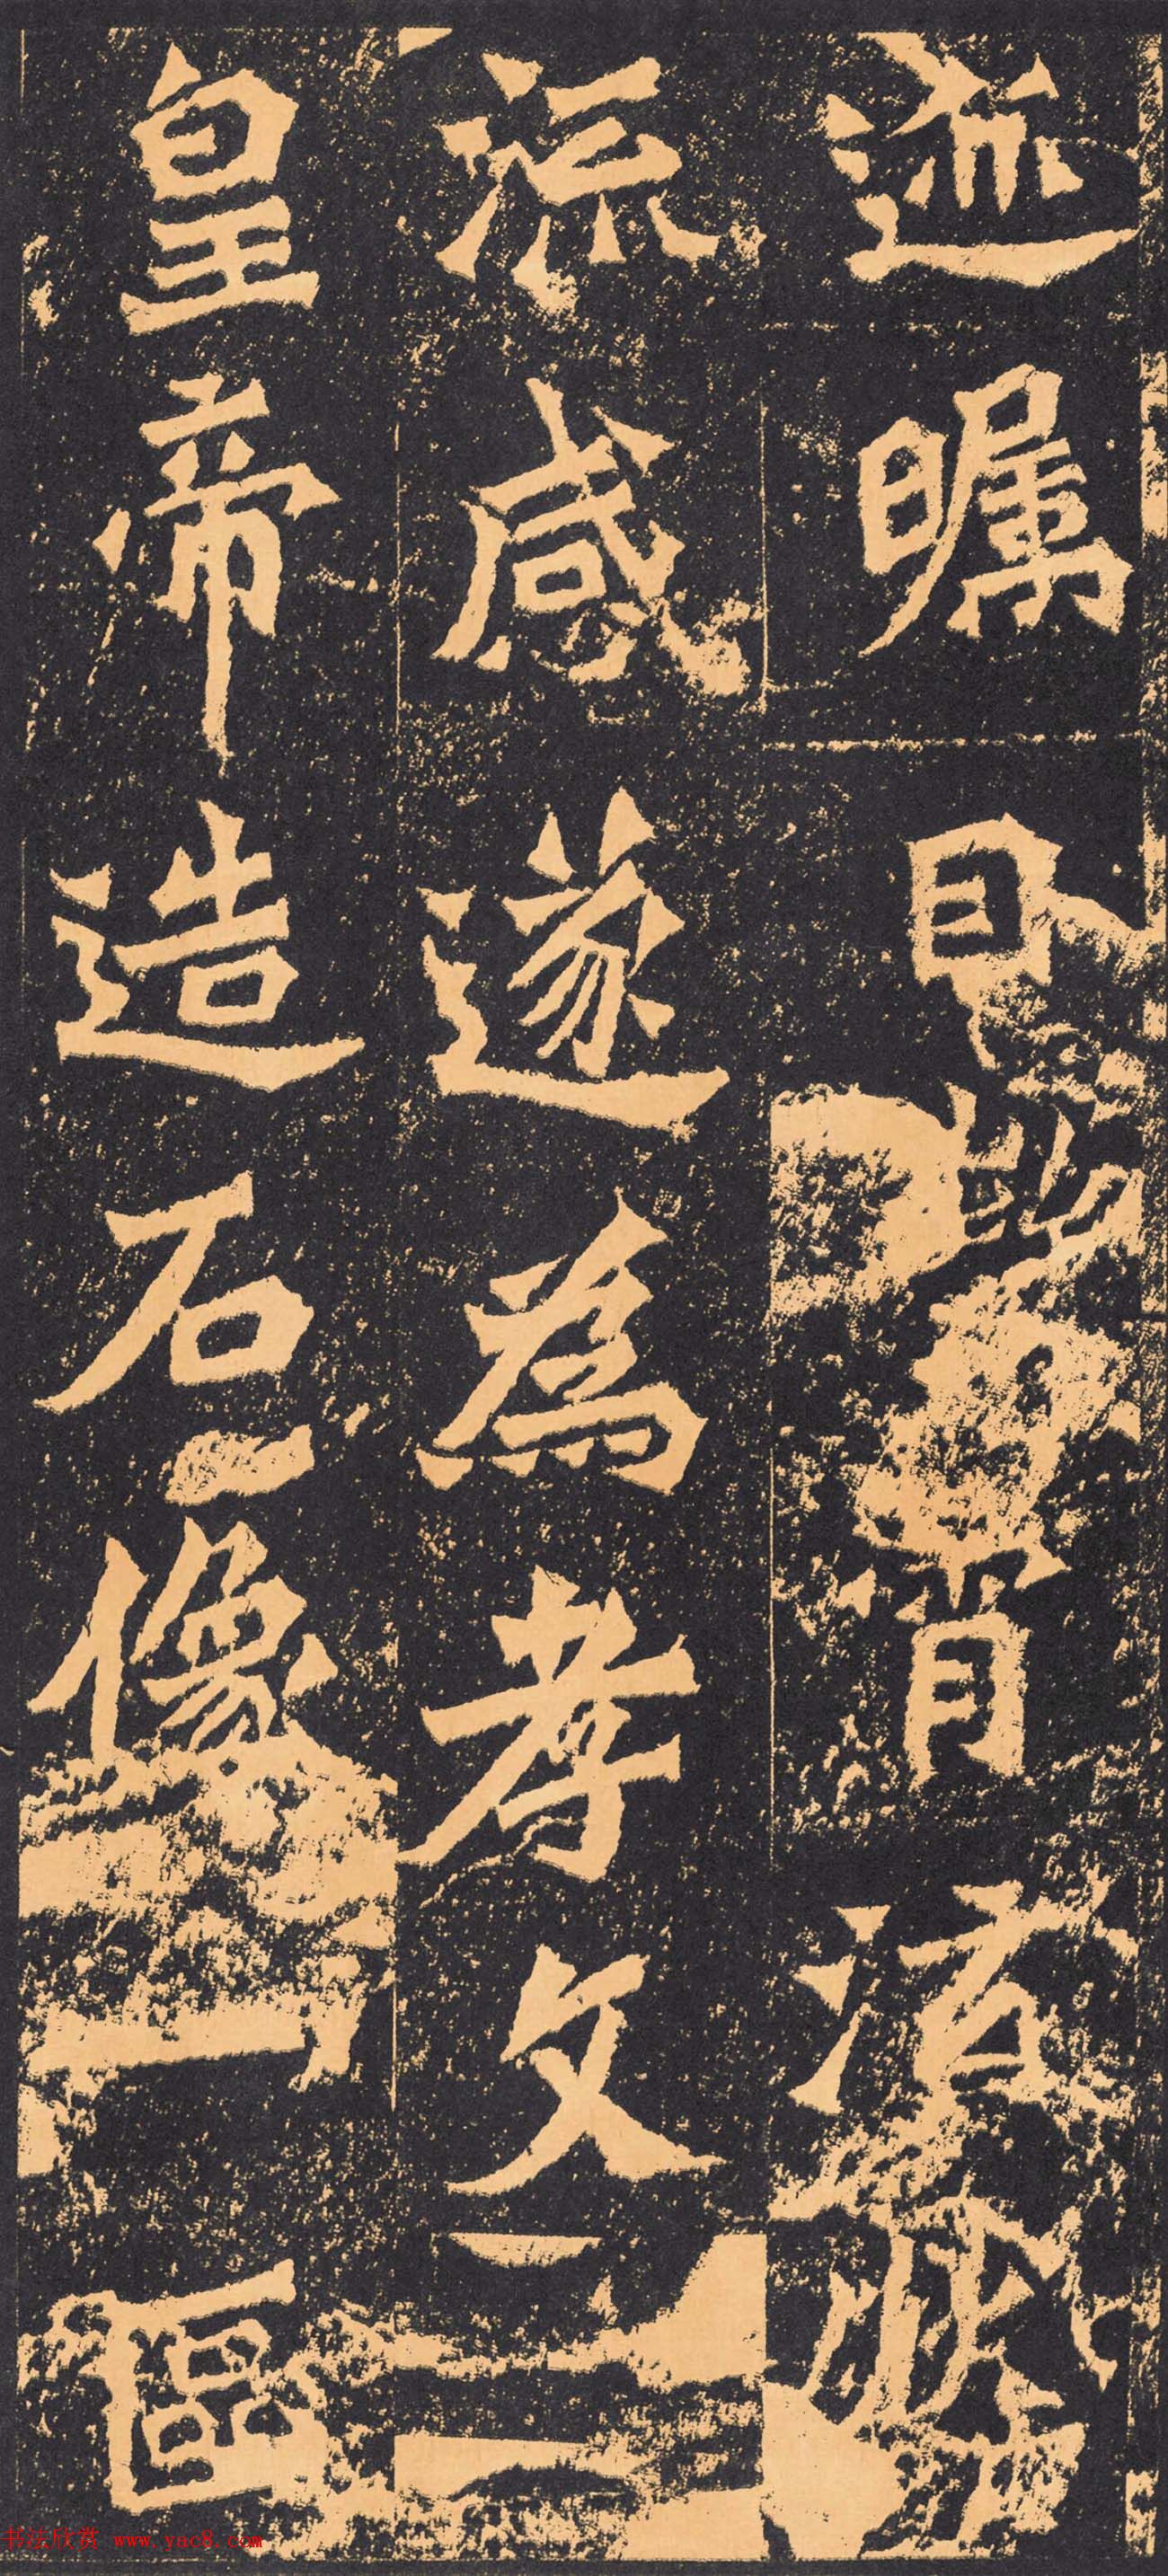 迹矚目霄泫然
流感遂為孝文
皇帝造石像一區
书法欣赏 www.yac8.com